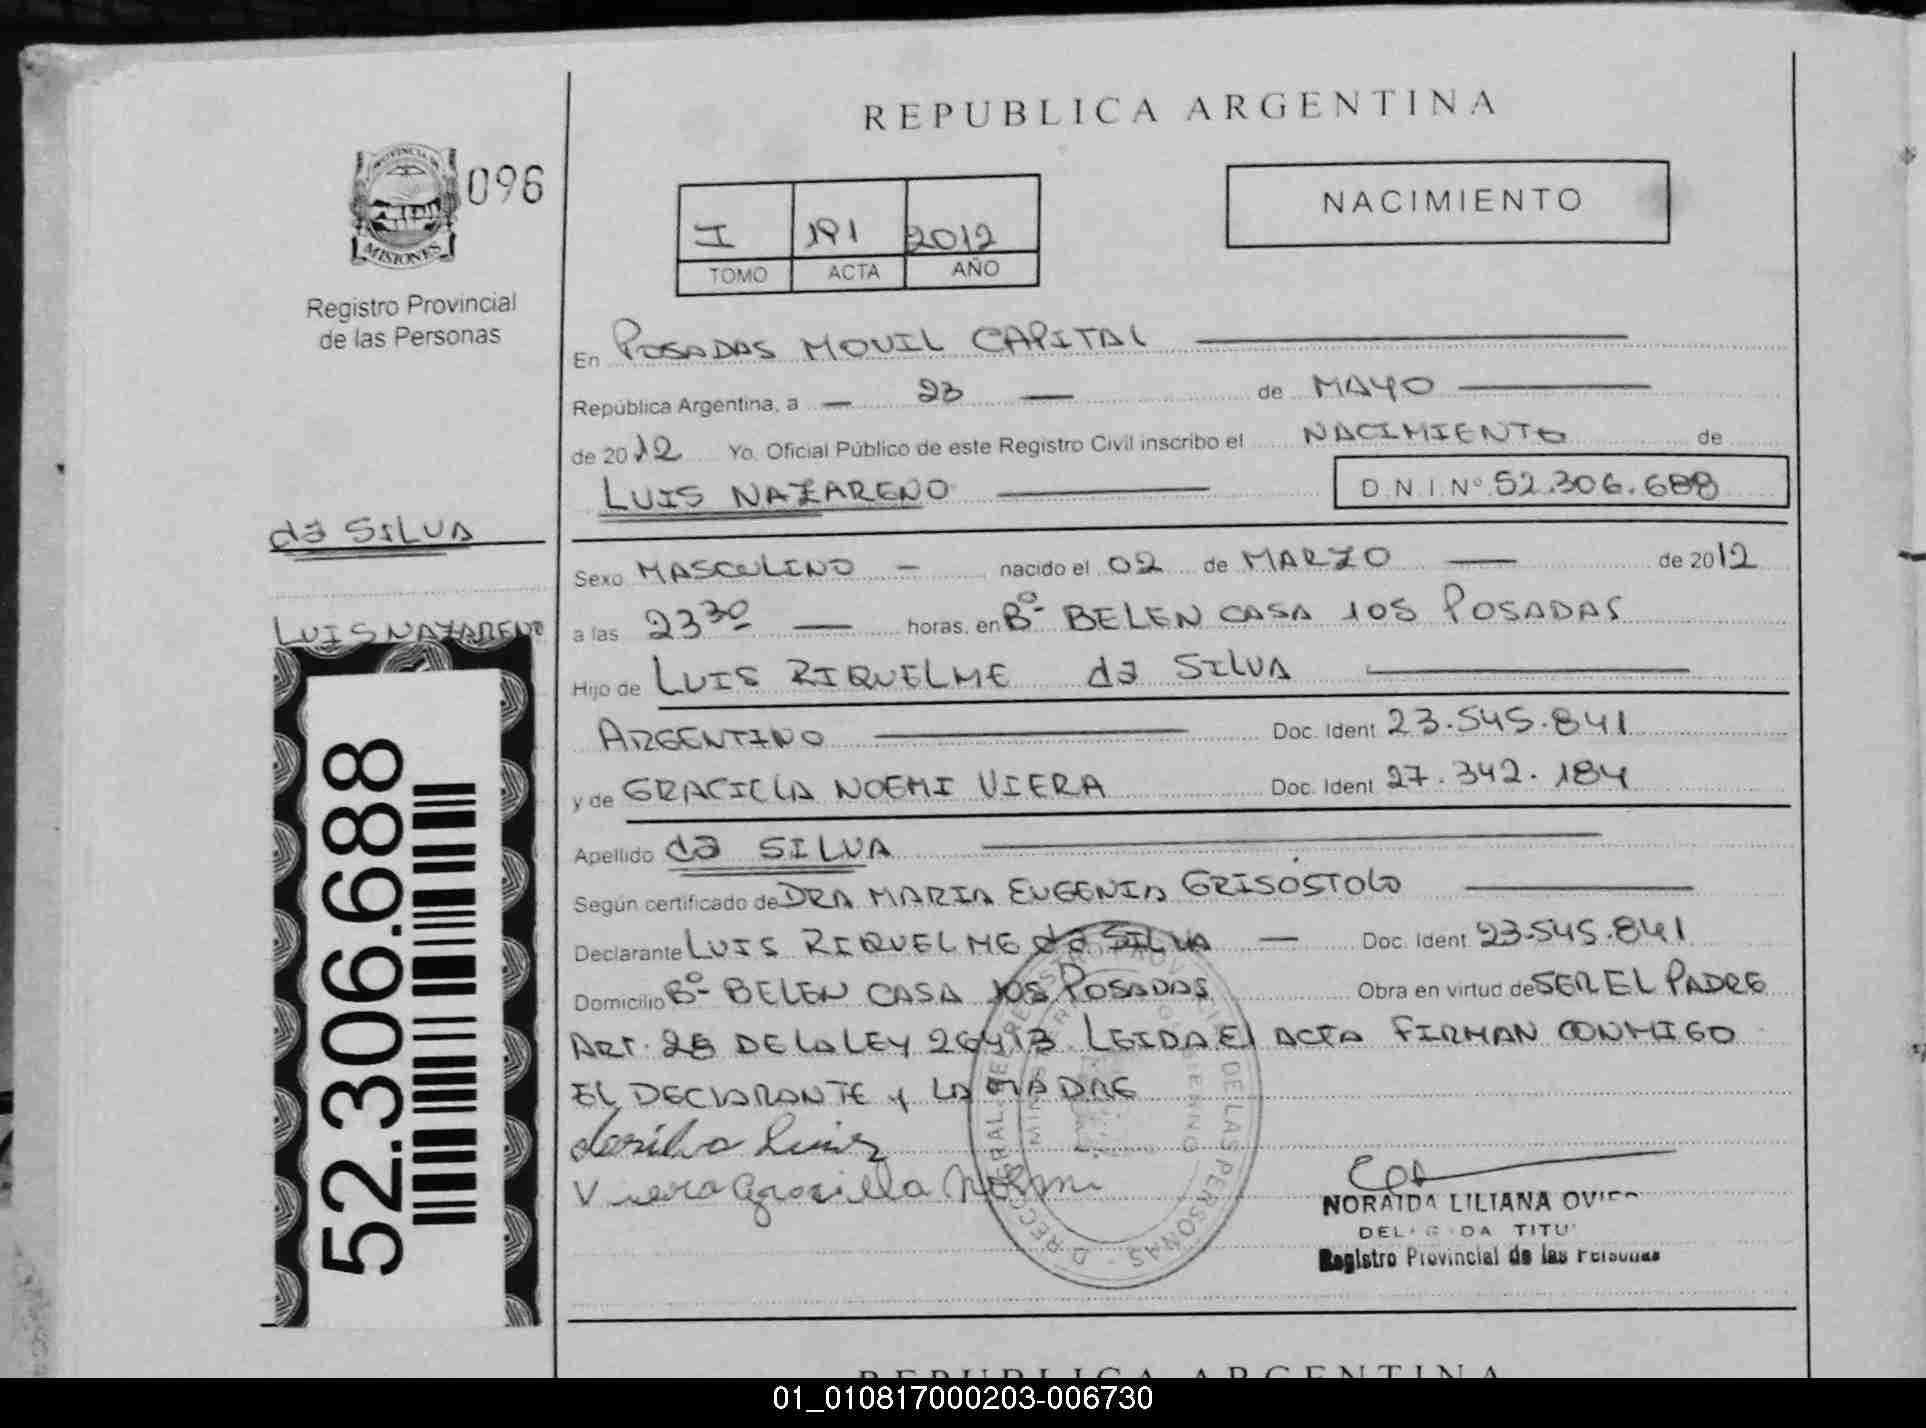 REPUBLICA ARGENTINA
PROVINCIA DE
MISIONES
096
NACIMIENTO
I 191 2012
TOMO ACTA AÑO
Registro Provincial
de las Personas
En POSADAS MOVIL CAPITAL
República Argentina, a 23 de MAYO
de 2012 Yo, Oficial Público de este Registro Civil inscribo el NACIMIENTO de
LUIS NAZARENO D.N.I.Nº 52.306.688
da SILVA
LUIS NAZARENO
Sexo MASCULINO nacido el 02 de MARZO de 2012
a las 23 30 horas, en Bº BELEN CASA 105 POSADAS
Hijo de LUIS RIQUELME da SILVA
ARGENTINO Doc. Ident 23.545.841
y de GRACIELA NOEMI VIERA Doc. Ident 27.342.184
Apellido da SILVA
Según certificado de DRA MARIA EUGENIA GRISOSTOLO
Declarante LUIS RIQUELME da SILVA Doc. Ident 23.545.841
Domicilio Bº BELEN CASA 105 POSADAS Obra en virtud de SER EL PADRE
ART. 28 DE LA LEY 26413 LEIDA EL ACTA FIRMAN CONMIGO
EL DECLARANTE y LA MADRE
dasilva Luis
Viera Graciella Noemi
NORAIDA LILIANA
Registro Provincial de las Personas
DE LAS PERSONAS
52.306.688
REPUBLICA ARGENTINA
01_010817000203-006730